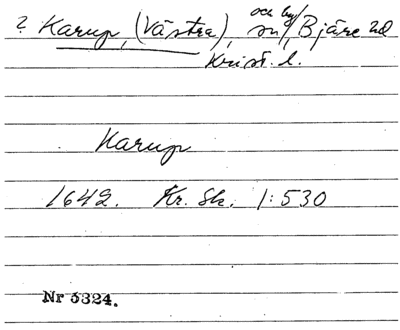 ? Karup, (Västra), och by/ sn/, Bjäre hd
Krist. l.
Karup
1642. Kr. Sk. 1:530
Nr 5324.